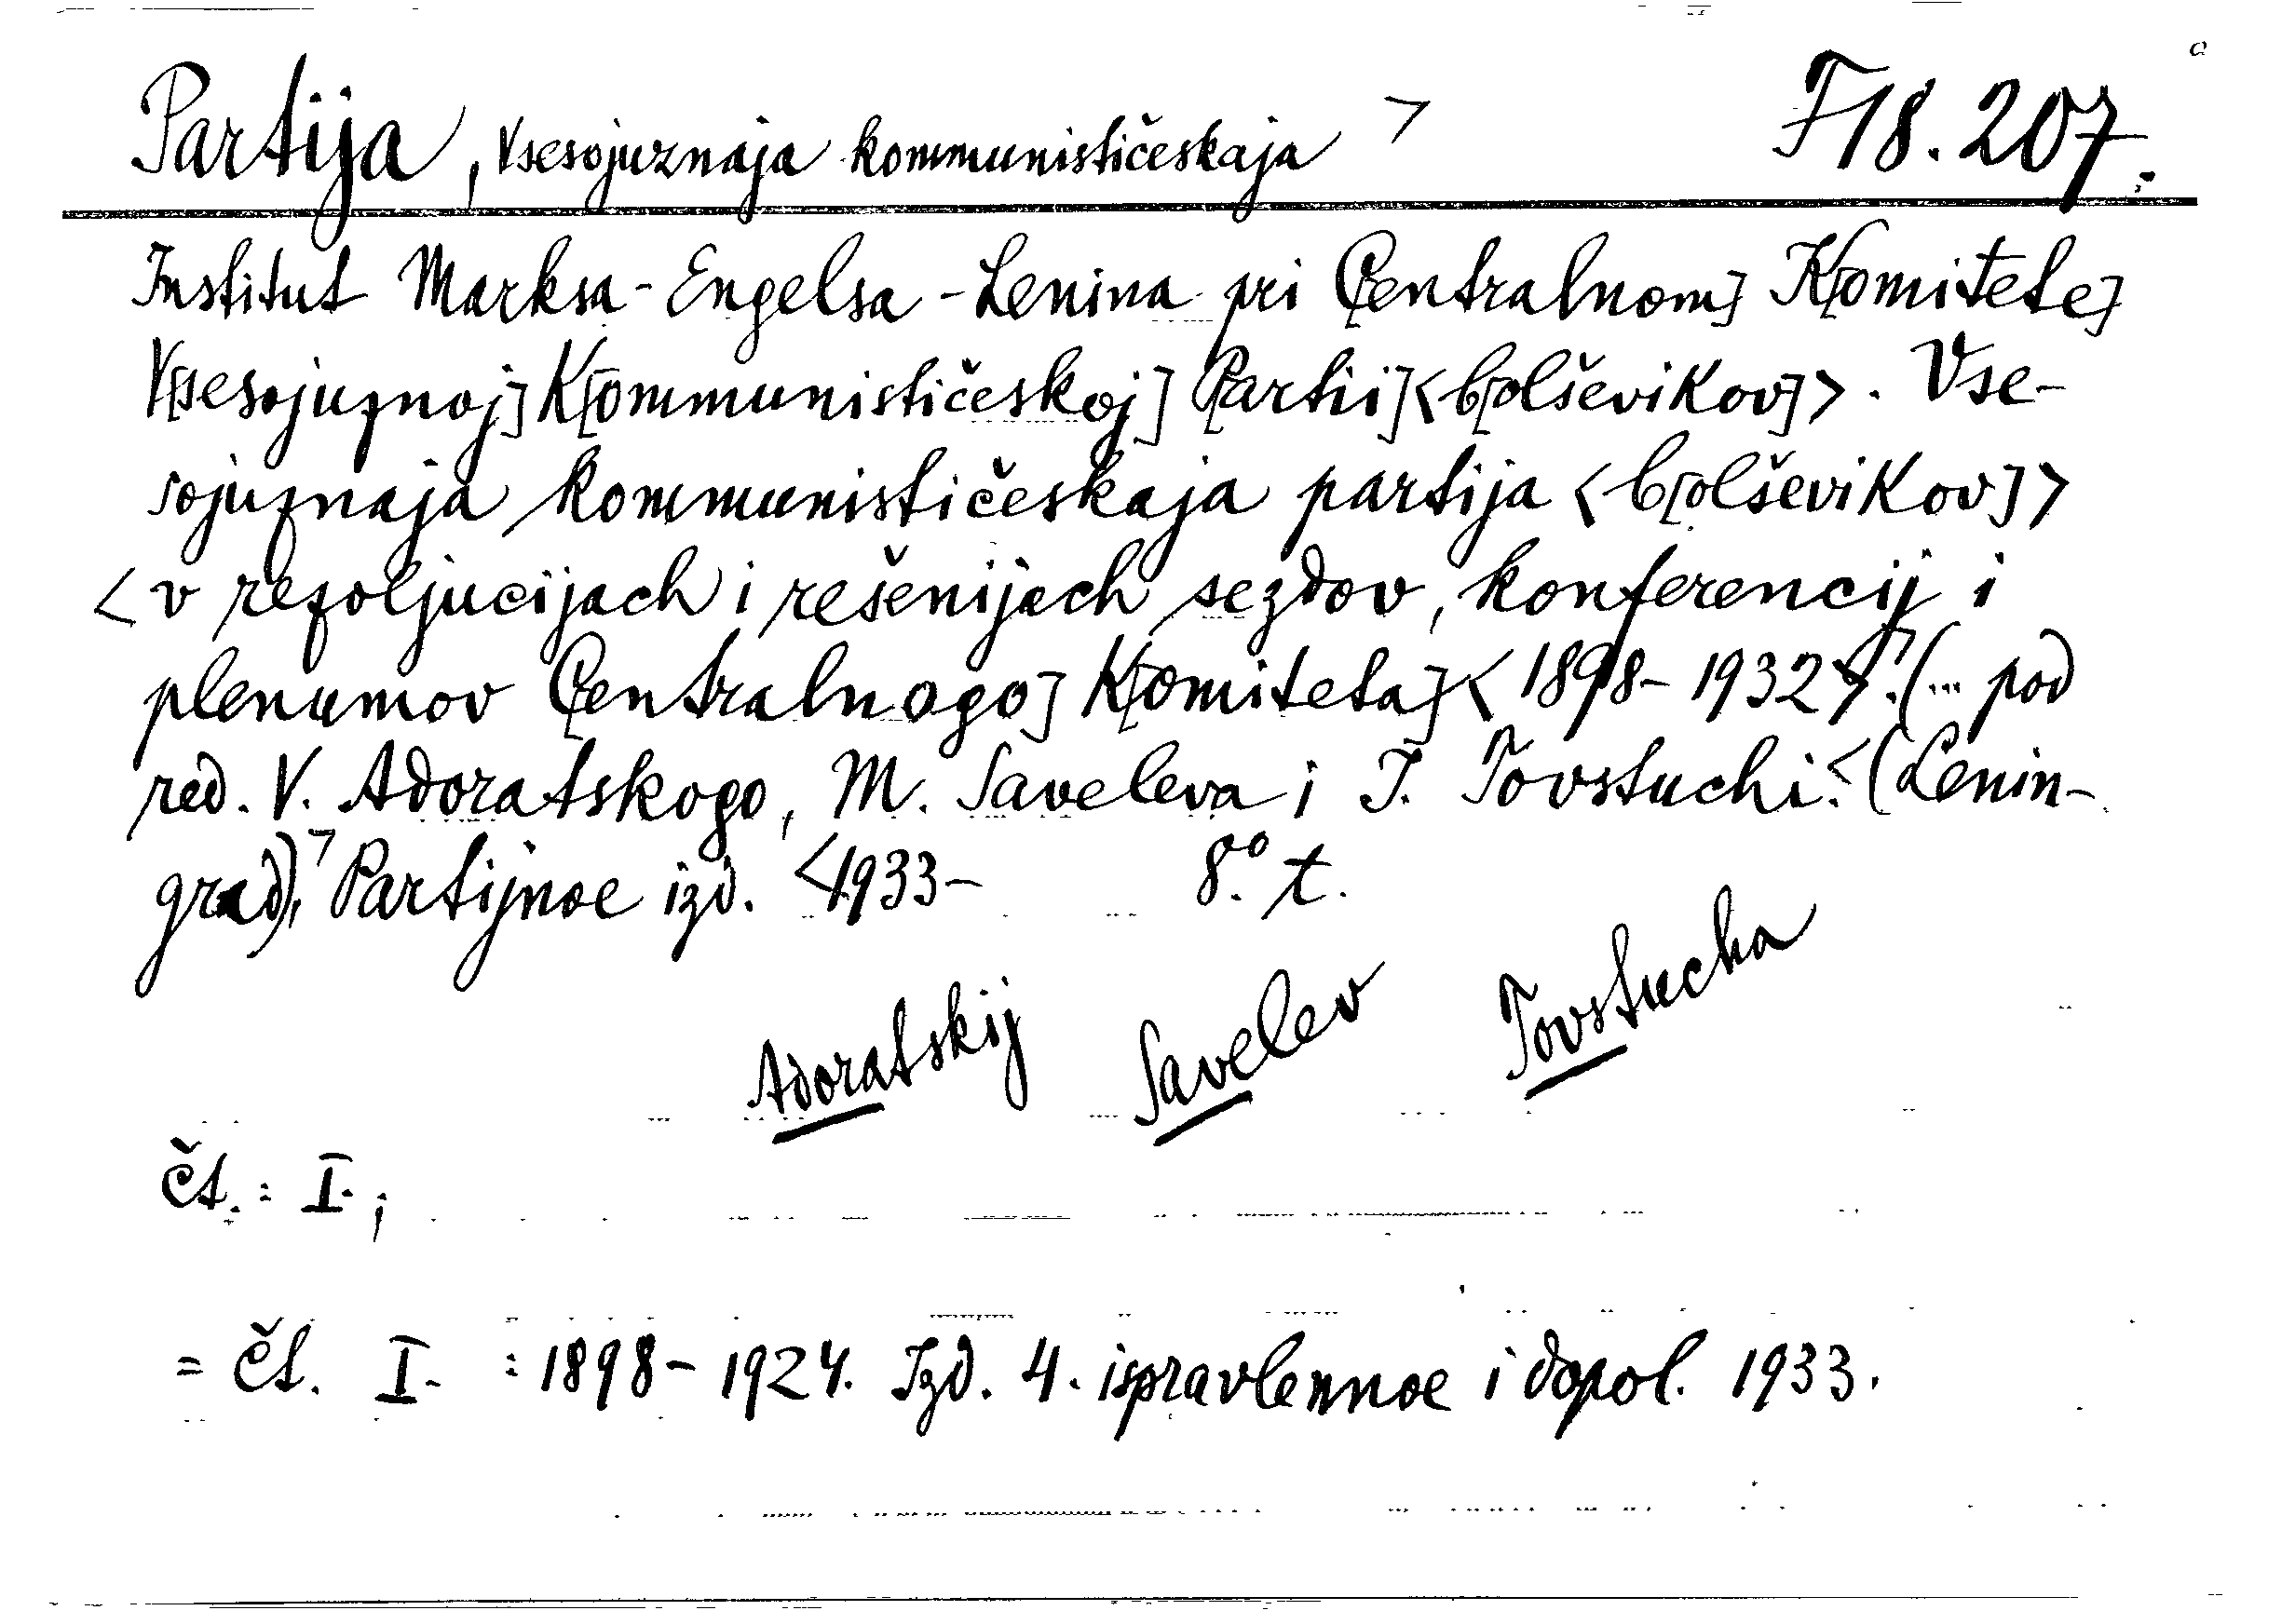 Partija, Vsesojuznaja kommunističeskaja > F 18.207.
Institut Marksa-Engelsa-Lenina pri C[entralnom] K[omitete]
V[sesojuznoj] K[ommunističeskoj] P[artii] <b[olševikov]>. Vse-
sojuznaja kommunističeskaja partija <b[olševikov]>
< v rezoljucijach i rešenijach sezdov, konferencij i
plenumov C[entralnogo] K[omiteta] < 1898-1932>. (... pod
red. V. Adoratskogo, M. Saveleva i I. Tovstuchi. < (Lenin-
grad), > Partijnoe izd. <1933- 8.° t.
Adoratskij Savelev Tovstucha
čt. : I. ;
= čt. I. : 1898-1924. Izd. 4. ispravlennoe i dopol. 1933.